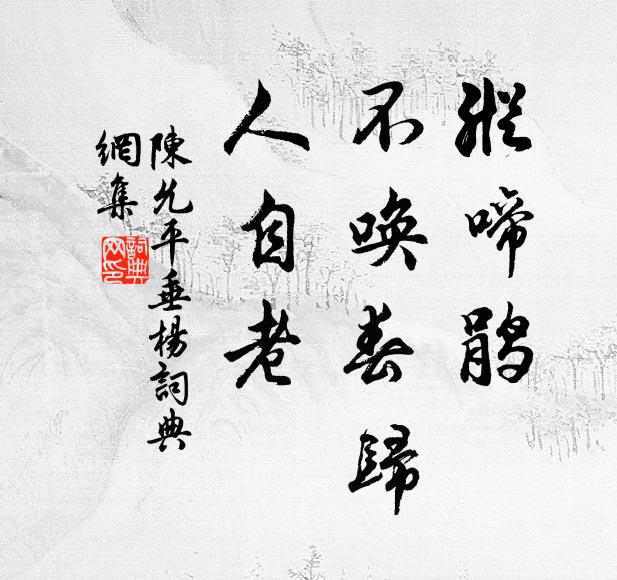 縱啼鵑
不唤春歸
人自老
陳允平垂楊詞典
網集
詞典
网印